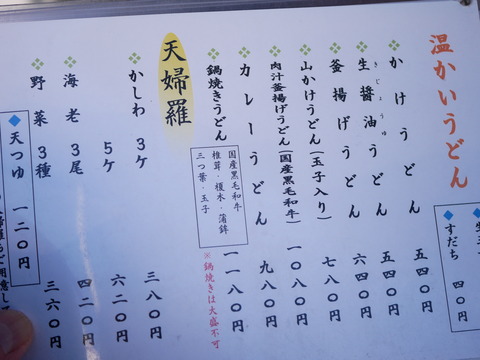 温かいうどん
すだち 四〇円
かけうどん 五四〇円
生醤油うどん 五四〇円
きじょうゆ
釜揚げうどん 六四〇円
山かけうどん(玉子入り) 七八〇円
肉汁釜揚げうどん(国産黒毛和牛) 一〇八〇円
カレーうどん 九八〇円
鍋焼きうどん 一一八〇円
国産黒毛和牛
椎茸・榎木・蒲鉾
三つ葉・玉子
※鍋焼きは大盛不可
天婦羅
かしわ 3ケ 三八〇円
5ケ 六二〇円
海老 3尾 四二〇円
野菜 3種 三六〇円
天つゆ 一二〇円